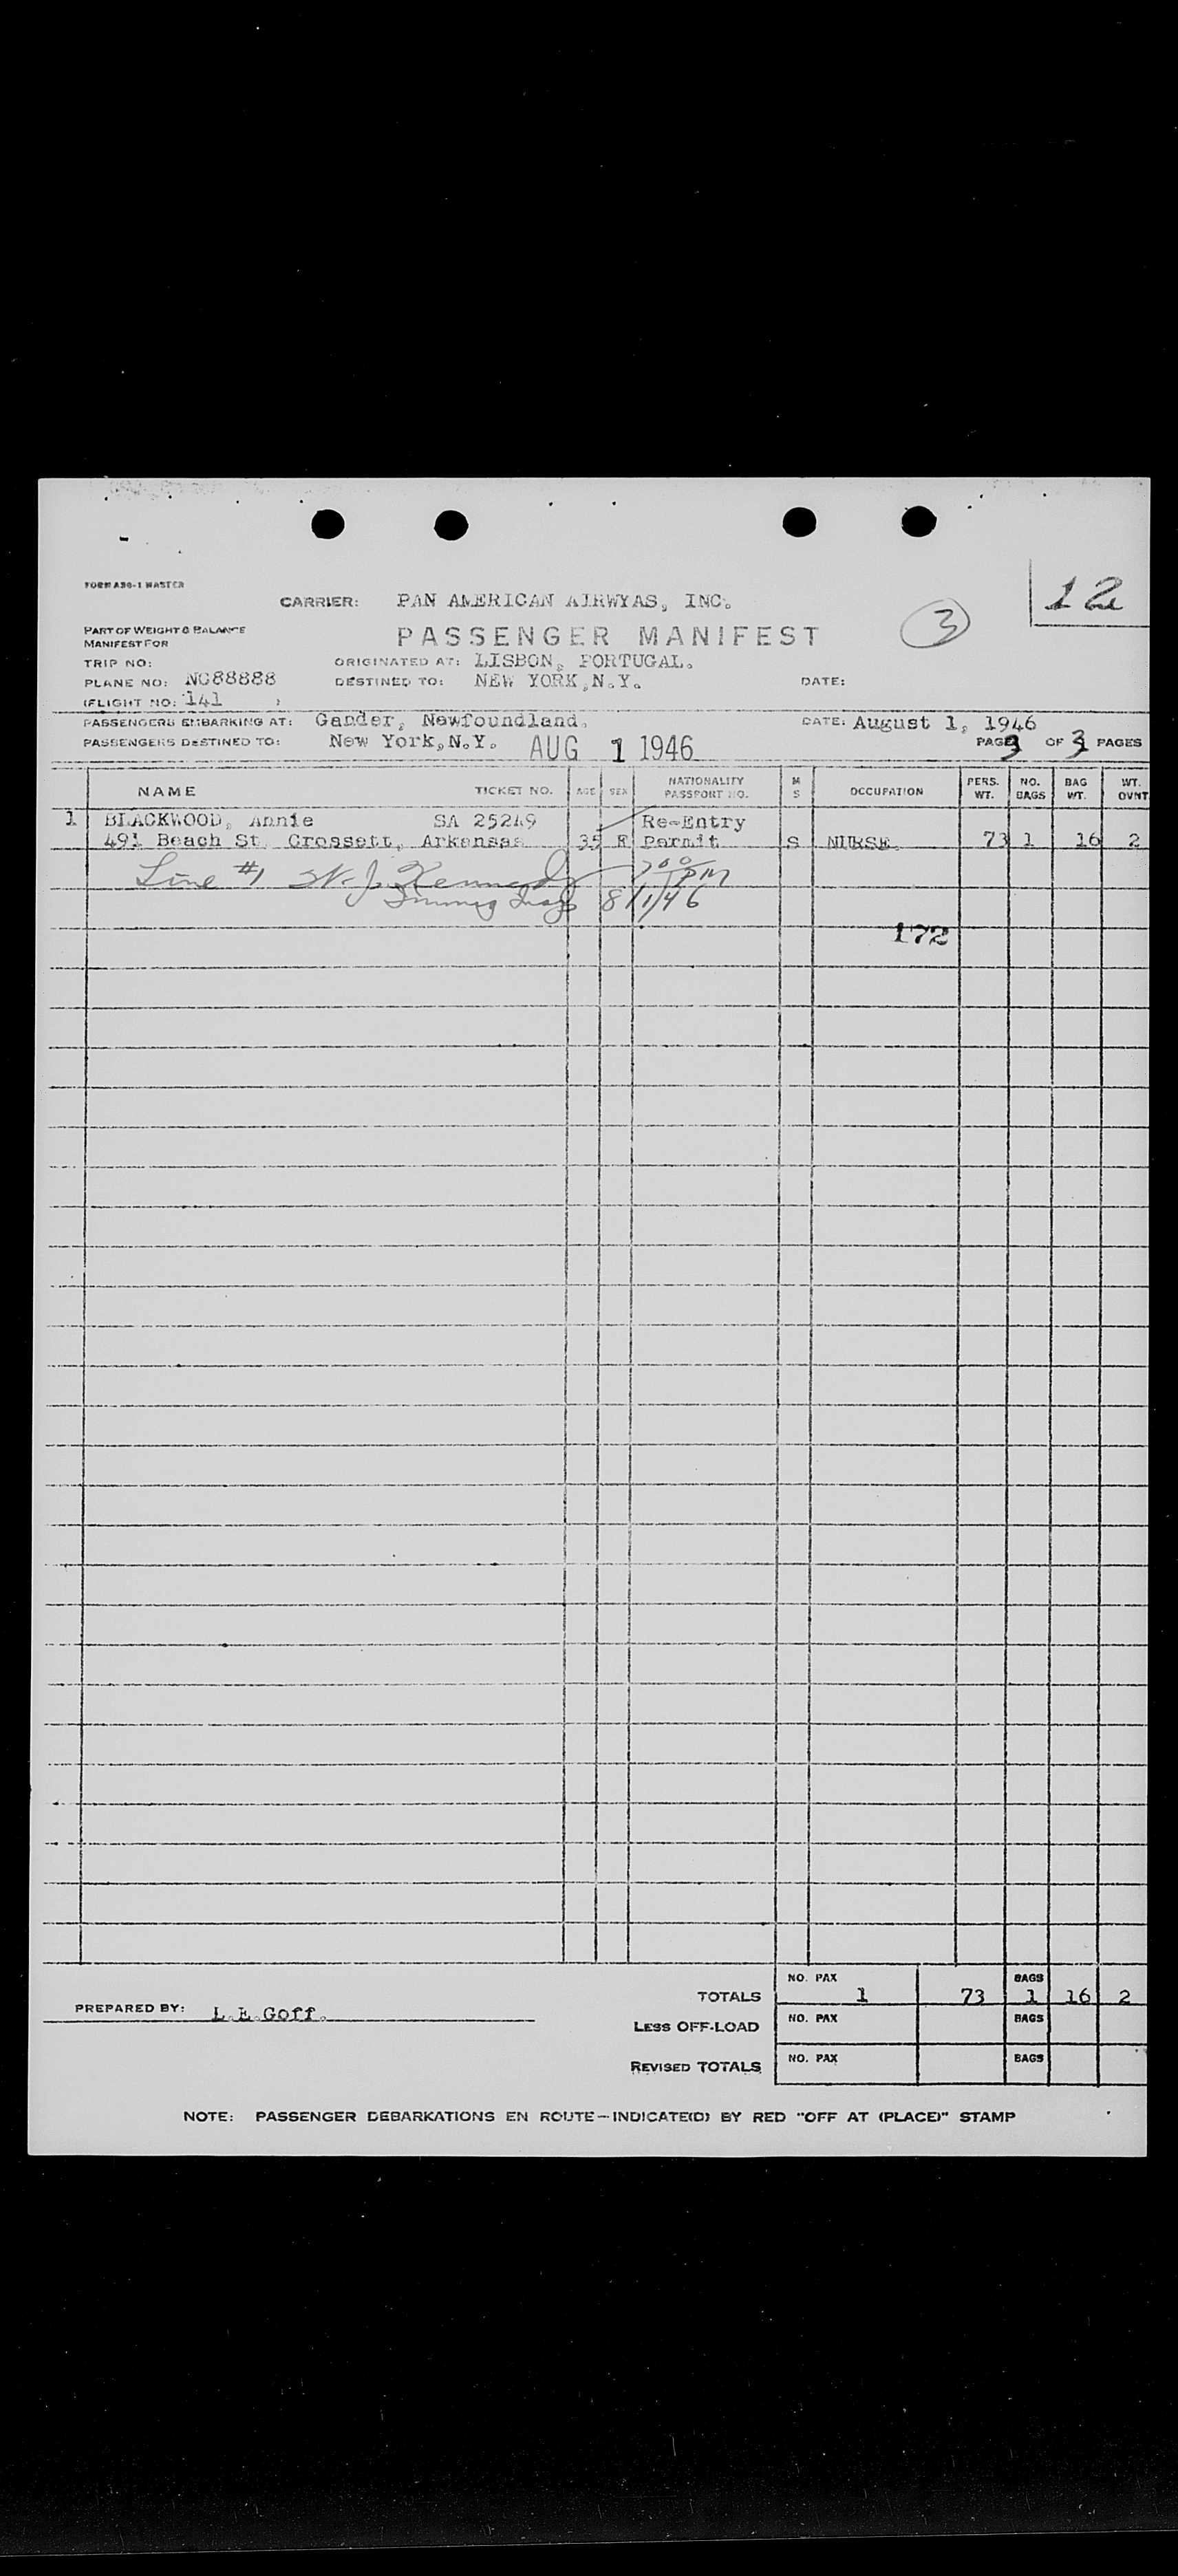 FORM A36-1 MASTER
12
CARRIER: PAN AMERICAN AIRWYAS, INC.
3
PART OF WEIGHT & BALANCE
MANIFEST FOR
PASSENGER MANIFEST
TRIP NO: ORIGINATED AT: LISBON, PORTUGAL.
PLANE NO: NC88888 DESTINED TO: NEW YORK,N.Y. DATE:
(FLIGHT NO: 141 )
PASSENGERS EMBARKING AT: Gander, Newfoundland. DATE: August 1, 1946
PASSENGERS DESTINED TO: New York,N.Y. AUG 1 1946 PAGE 3 OF 3 PAGES
NAME TICKET NO. AGE SEX NATIONALITY PASSPORT NO. M S OCCUPATION PERS. WT. NO. BAGS BAG WT. WT. OVNT
1 BLACKWOOD, Annie SA 25249 Re-Entry
491 Beach St. Crossett, Arkansas 35 F Permit S NURSE. 73 1 16 2
Line #1 W. J. Kennedy 700 PM
Immig Insp 8/1/46
172
NO. PAX BAGS
TOTALS 1 73 1 16 2
PREPARED BY: L.E.Goff.
LESS OFF-LOAD NO. PAX BAGS
REVISED TOTALS NO. PAX BAGS
NOTE: PASSENGER DEBARKATIONS EN ROUTE—INDICATE(D) BY RED "OFF AT (PLACE)" STAMP